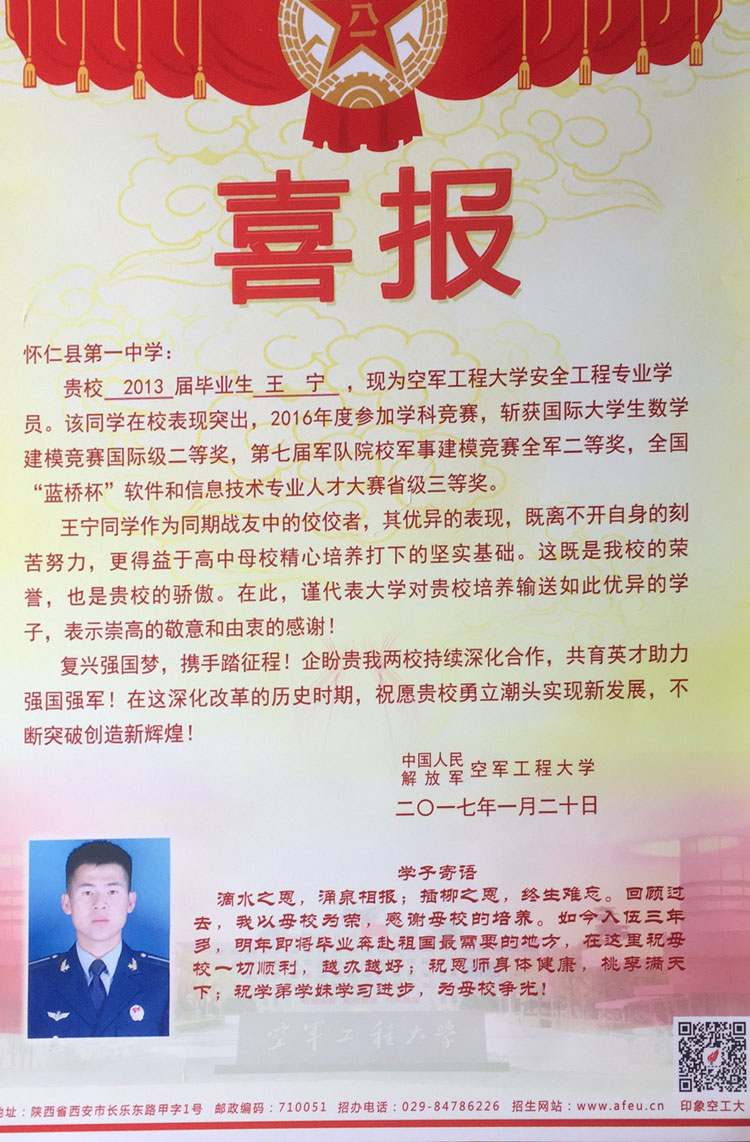 八一
喜报
怀仁县第一中学：
贵校 2013 届毕业生 王 宁 ，现为空军工程大学安全工程专业学
员。该同学在校表现突出，2016年度参加学科竞赛，斩获国际大学生数学
建模竞赛国际级二等奖，第七届军队院校军事建模竞赛全军二等奖，全国
“蓝桥杯”软件和信息技术专业人才大赛省级三等奖。
王宁同学作为同期战友中的佼佼者，其优异的表现，既离不开自身的刻
苦努力，更得益于高中母校精心培养打下的坚实基础。这既是我校的荣
誉，也是贵校的骄傲。在此，谨代表大学对贵校培养输送如此优异的学
子，表示崇高的敬意和由衷的感谢！
复兴强国梦，携手踏征程！企盼贵我两校持续深化合作，共育英才助力
强国强军！在这深化改革的历史时期，祝愿贵校勇立潮头实现新发展，不
断突破创造新辉煌！
中国人民
解放军 空军工程大学
二〇一七年一月二十日
学子寄语
滴水之恩，涌泉相报；插柳之恩，终生难忘。回顾过
去，我以母校为荣，感谢母校的培养。如今入伍三年
多，明年即将毕业奔赴祖国最需要的地方，在这里祝母
校一切顺利，越办越好；祝恩师身体健康，桃李满天
下；祝学弟学妹学习进步，为母校争光！
空军工程大学
地址：陕西省西安市长乐东路甲字1号 邮政编码：710051 招办电话：029-84786226 招生网站：www.afeu.cn 印象空工大